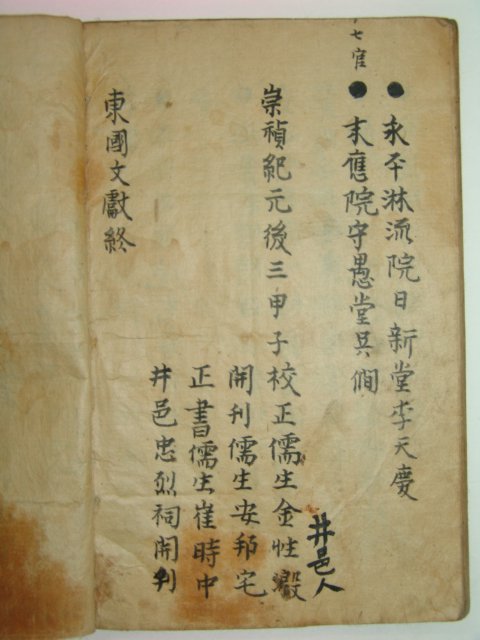 七宦
● 永平淋流院日新堂李天慶
● 末應院守愚堂吳僩
崇禎紀元後三甲子校正儒生金性澱
井邑人
開刊儒生安邦宅
正書儒生崔時中
井邑忠烈祠開刊
東國文獻終